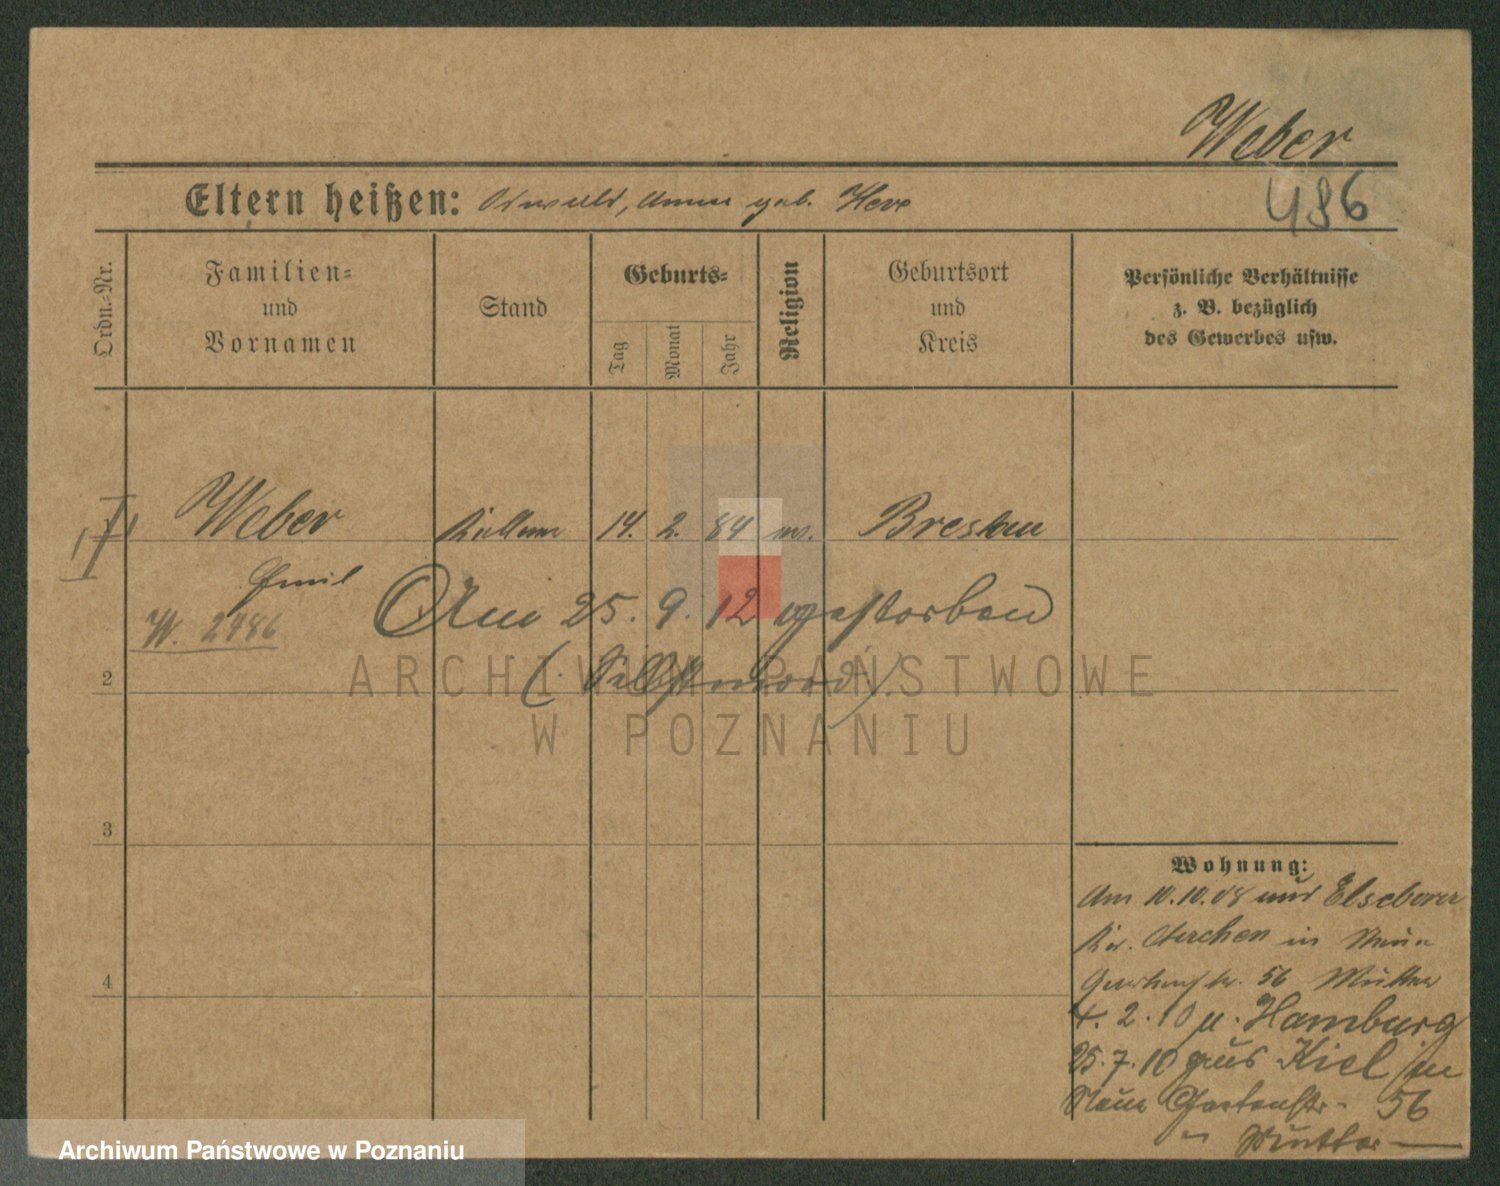 Weber
Eltern heißen: Oswald, Anna geb.
486
Ordn.-Nr.
Familien-
und
Vornamen
Stand
Geburts-
Tag
Monat
Jahr
Religion
Geburtsort
und
Kreis
Persönliche Verhältnisse
z. B. bezüglich
des Gewerbes usw.
Weber
Kellner
14. 2. 84
Breslau
Emil
Am 25. 9. 12 gestorben
W. 2486
(Selbstmord)
2
3
4
Wohnung:
Am 10.10.08 aus
in Neue
Gartenstr. 56 Mutter
4. 2. 10 n. Hamburg
25. 7. 10 aus Kiel in
Neue Gartenstr. 56
Mutter
ARCHIWUM PAŃSTWOWE
W POZNANIU
Archiwum Państwowe w Poznaniu